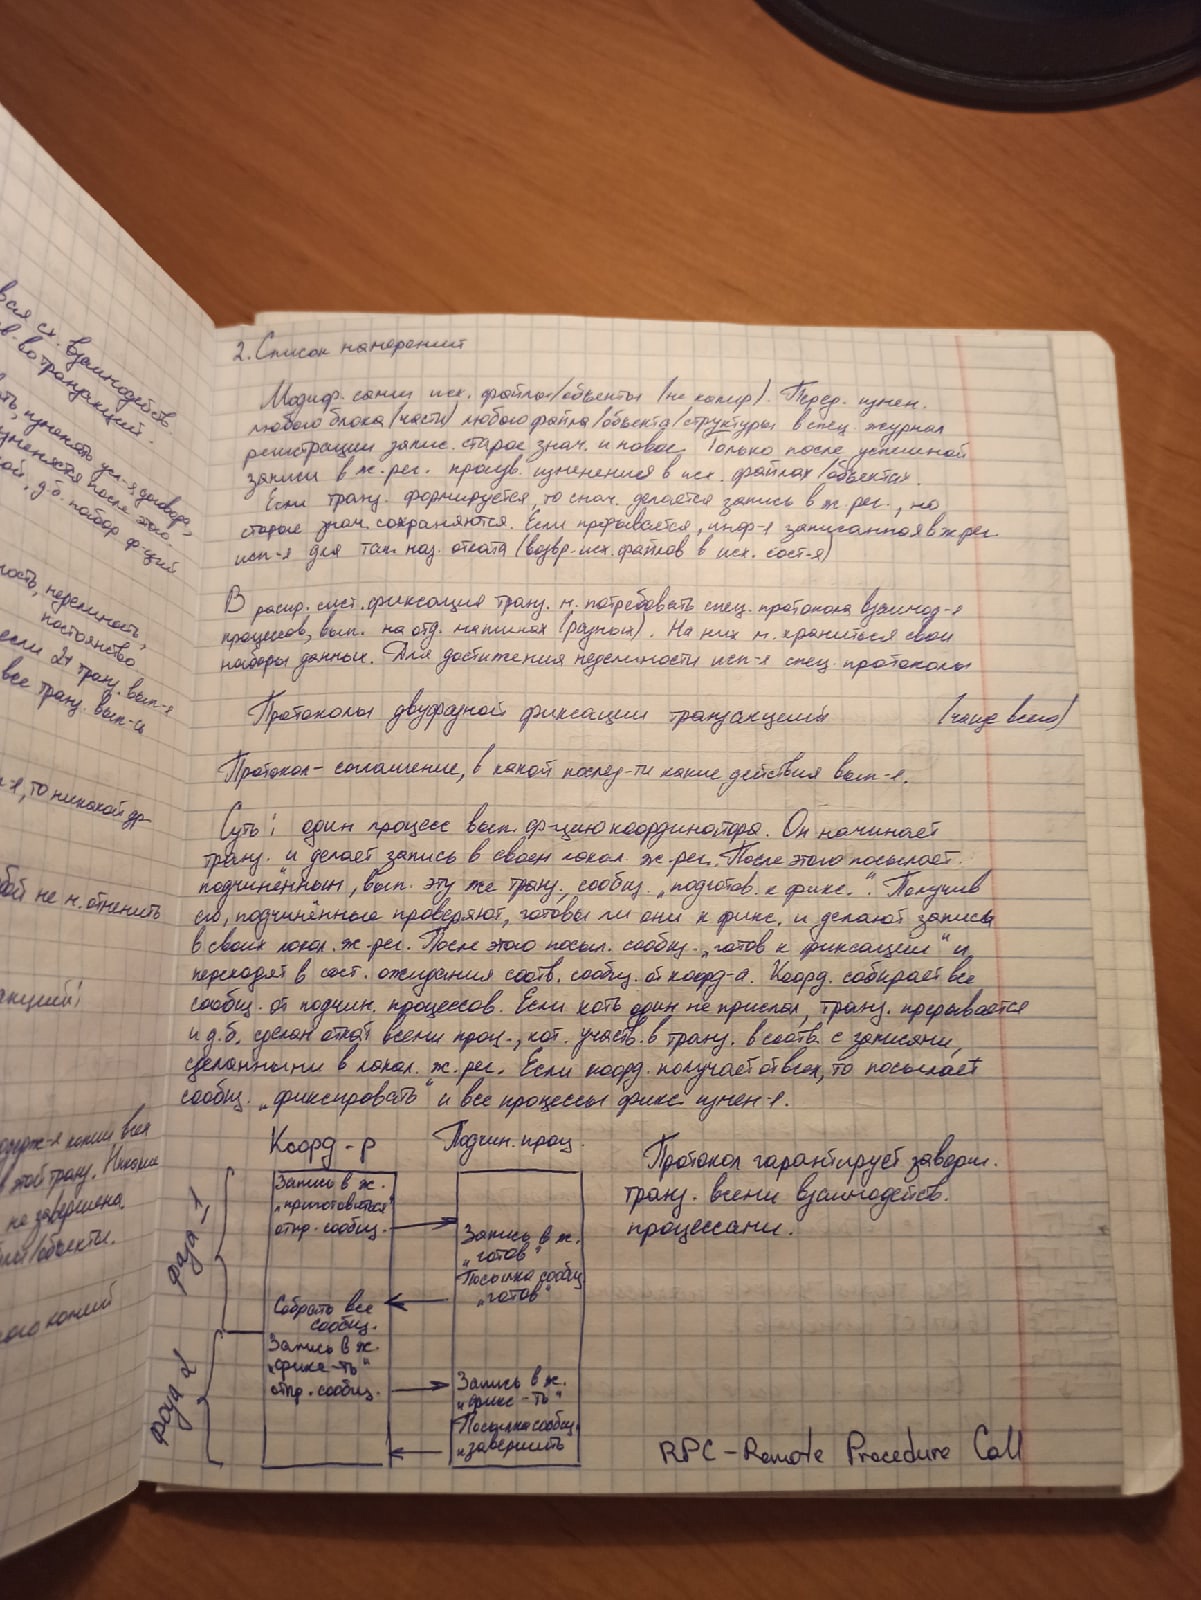 вся сх. взаимодейств.
в-во транзакций.
ть, изменять усл-я договора,
зменяется после этого.
ой, д.б. набор ф-ций
ность, неделимость,
постоянство
если 2+ транз. вып-я
все транз. вып-сь
-я, то никакой др-
бой не м. отменить
акций!
содерж-я копии всех
этой транз. Никакие
не завершена.
/объекты.
копий
2. Список намерений
Модиф. сами исх. файлы/объекты (не копир). Перед. измен.
любого блока (части) любого файла/объекта/структуры в спец. журнал
регистрации запис. старое знач. и новое. Только после успешной
записи в ж. рег. произв. изменения в исх. файлах/объектах.
Если транз. формируется, то снач. делается запись в ж. рег., но
старые знач. сохраняются. Если прерывается, инф-я записанная в ж. рег.
исп-я для так наз. отката (возвр. исх. файлов в исх. сост-я)
В распр. сист. фиксация транз. м. потребовать спец. протокола взаимод-я
процессов, вып. на отд. машинах (разных). На них м. храниться свои
наборы данных. Для достижения неделимости исп-я спец. протоколы
Протоколы двуфазной фиксации транзакций (чаще всего)
Протокол - соглашение, в какой послед-ти какие действия вып-я.
Суть: один процесс вып. ф-цию координатора. Он начинает
транз. и делает запись в своем локал. ж. рег. После этого посылает
подчинённым, вып. эту же транз., сообщ. „подготов. к фикс.“. Получив
его, подчинённые проверяют, готовы ли они к фикс. и делают записи
в своих локал. ж. рег. После этого посыл. сообщ. „готов к фиксации“ и
переходят в сост. ожидания соотв. сообщ. от коорд-а. Коорд. собирает все
сообщ. от подчин. процессов. Если хоть один не прислал, транз. прерывается
и д.б. сделан откат всеми проц., кот. участв. в транз. в соотв. с записями,
сделанными в локал. ж. рег. Если коорд. получает от всех, то посылает
сообщ. „фиксировать“ и все процессы фикс. измен-я.
Коорд-р Подчин. проц.
Фаза 1
Запись в ж.
„приготовиться“
отпр. сообщ.
Запись в ж.
„готов“
Посылка сообщ
„готов“
Собрать все
сообщ.
Фаза 2
Запись в ж.
„фикс-ть“
отпр. сообщ.
Запись в ж.
„фикс-ть“
Посылка сообщ.
„завершить
Протокол гарантирует заверш.
транз. всеми взаимодейств.
процессами.
RPC - Remote Procedure Call